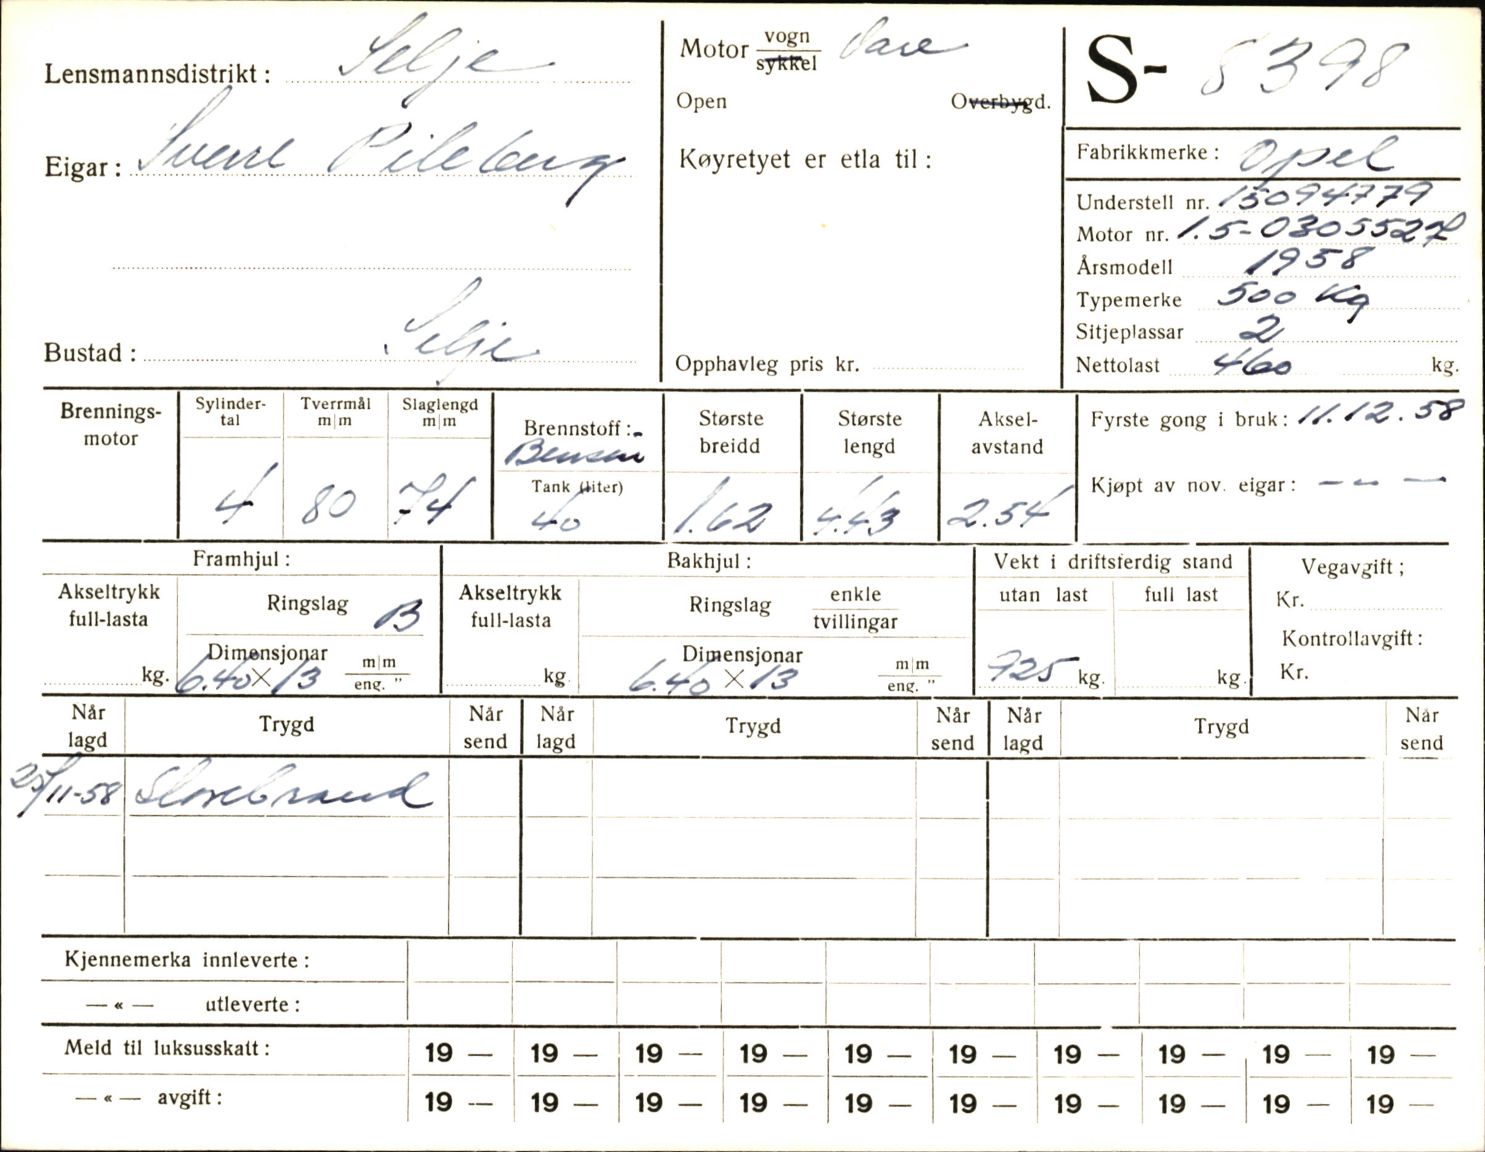 Lensmannsdistrikt: Selje
Eigar: Sverre Pileberg
Bustad: Selje
Motor vogn Vare
sykkel
Open Overbygd.
Køyretyet er etla til:
Opphavleg pris kr.
S- 8398
Fabrikkmerke: Opel
Understell nr. 15094779
Motor nr. 1.5-0305527
Årsmodell 1958
Typemerke 500 Kg
Sitjeplassar 2
Nettolast 460 kg.
Brennings-
motor
Sylinder-
tal
4
Tverrmål
m|m
80
Slaglengd
m|m
74
Brennstoff:-
Bensin
Tank (liter)
40
Største
breidd
1.62
Største
lengd
4.43
Aksel-
avstand
2.54
Fyrste gong i bruk: 11.12.58
Kjøpt av nov. eigar: — — —
Framhjul:
Akseltrykk
full-lasta
kg.
Ringslag B
Dimensjonar
6.40 × 13 m|m
eng. "
Bakhjul:
Akseltrykk
full-lasta
kg.
Ringslag enkle
tvillingar
Dimensjonar
6.40 × 13 m|m
eng. "
Vekt i driftsferdig stand
utan last full last
925 kg. kg.
Vegavgift;
Kr.
Kontrollavgift:
Kr.
Når
lagd Trygd Når
send Når
lagd Trygd Når
send Når
lagd Trygd Når
send
25/11-58 Storebrand
Kjennemerka innleverte:
— « — utleverte:
Meld til luksusskatt: 19 — 19 — 19 — 19 — 19 — 19 — 19 — 19 — 19 — 19 —
— « — avgift: 19 — 19 — 19 — 19 — 19 — 19 — 19 — 19 — 19 — 19 —